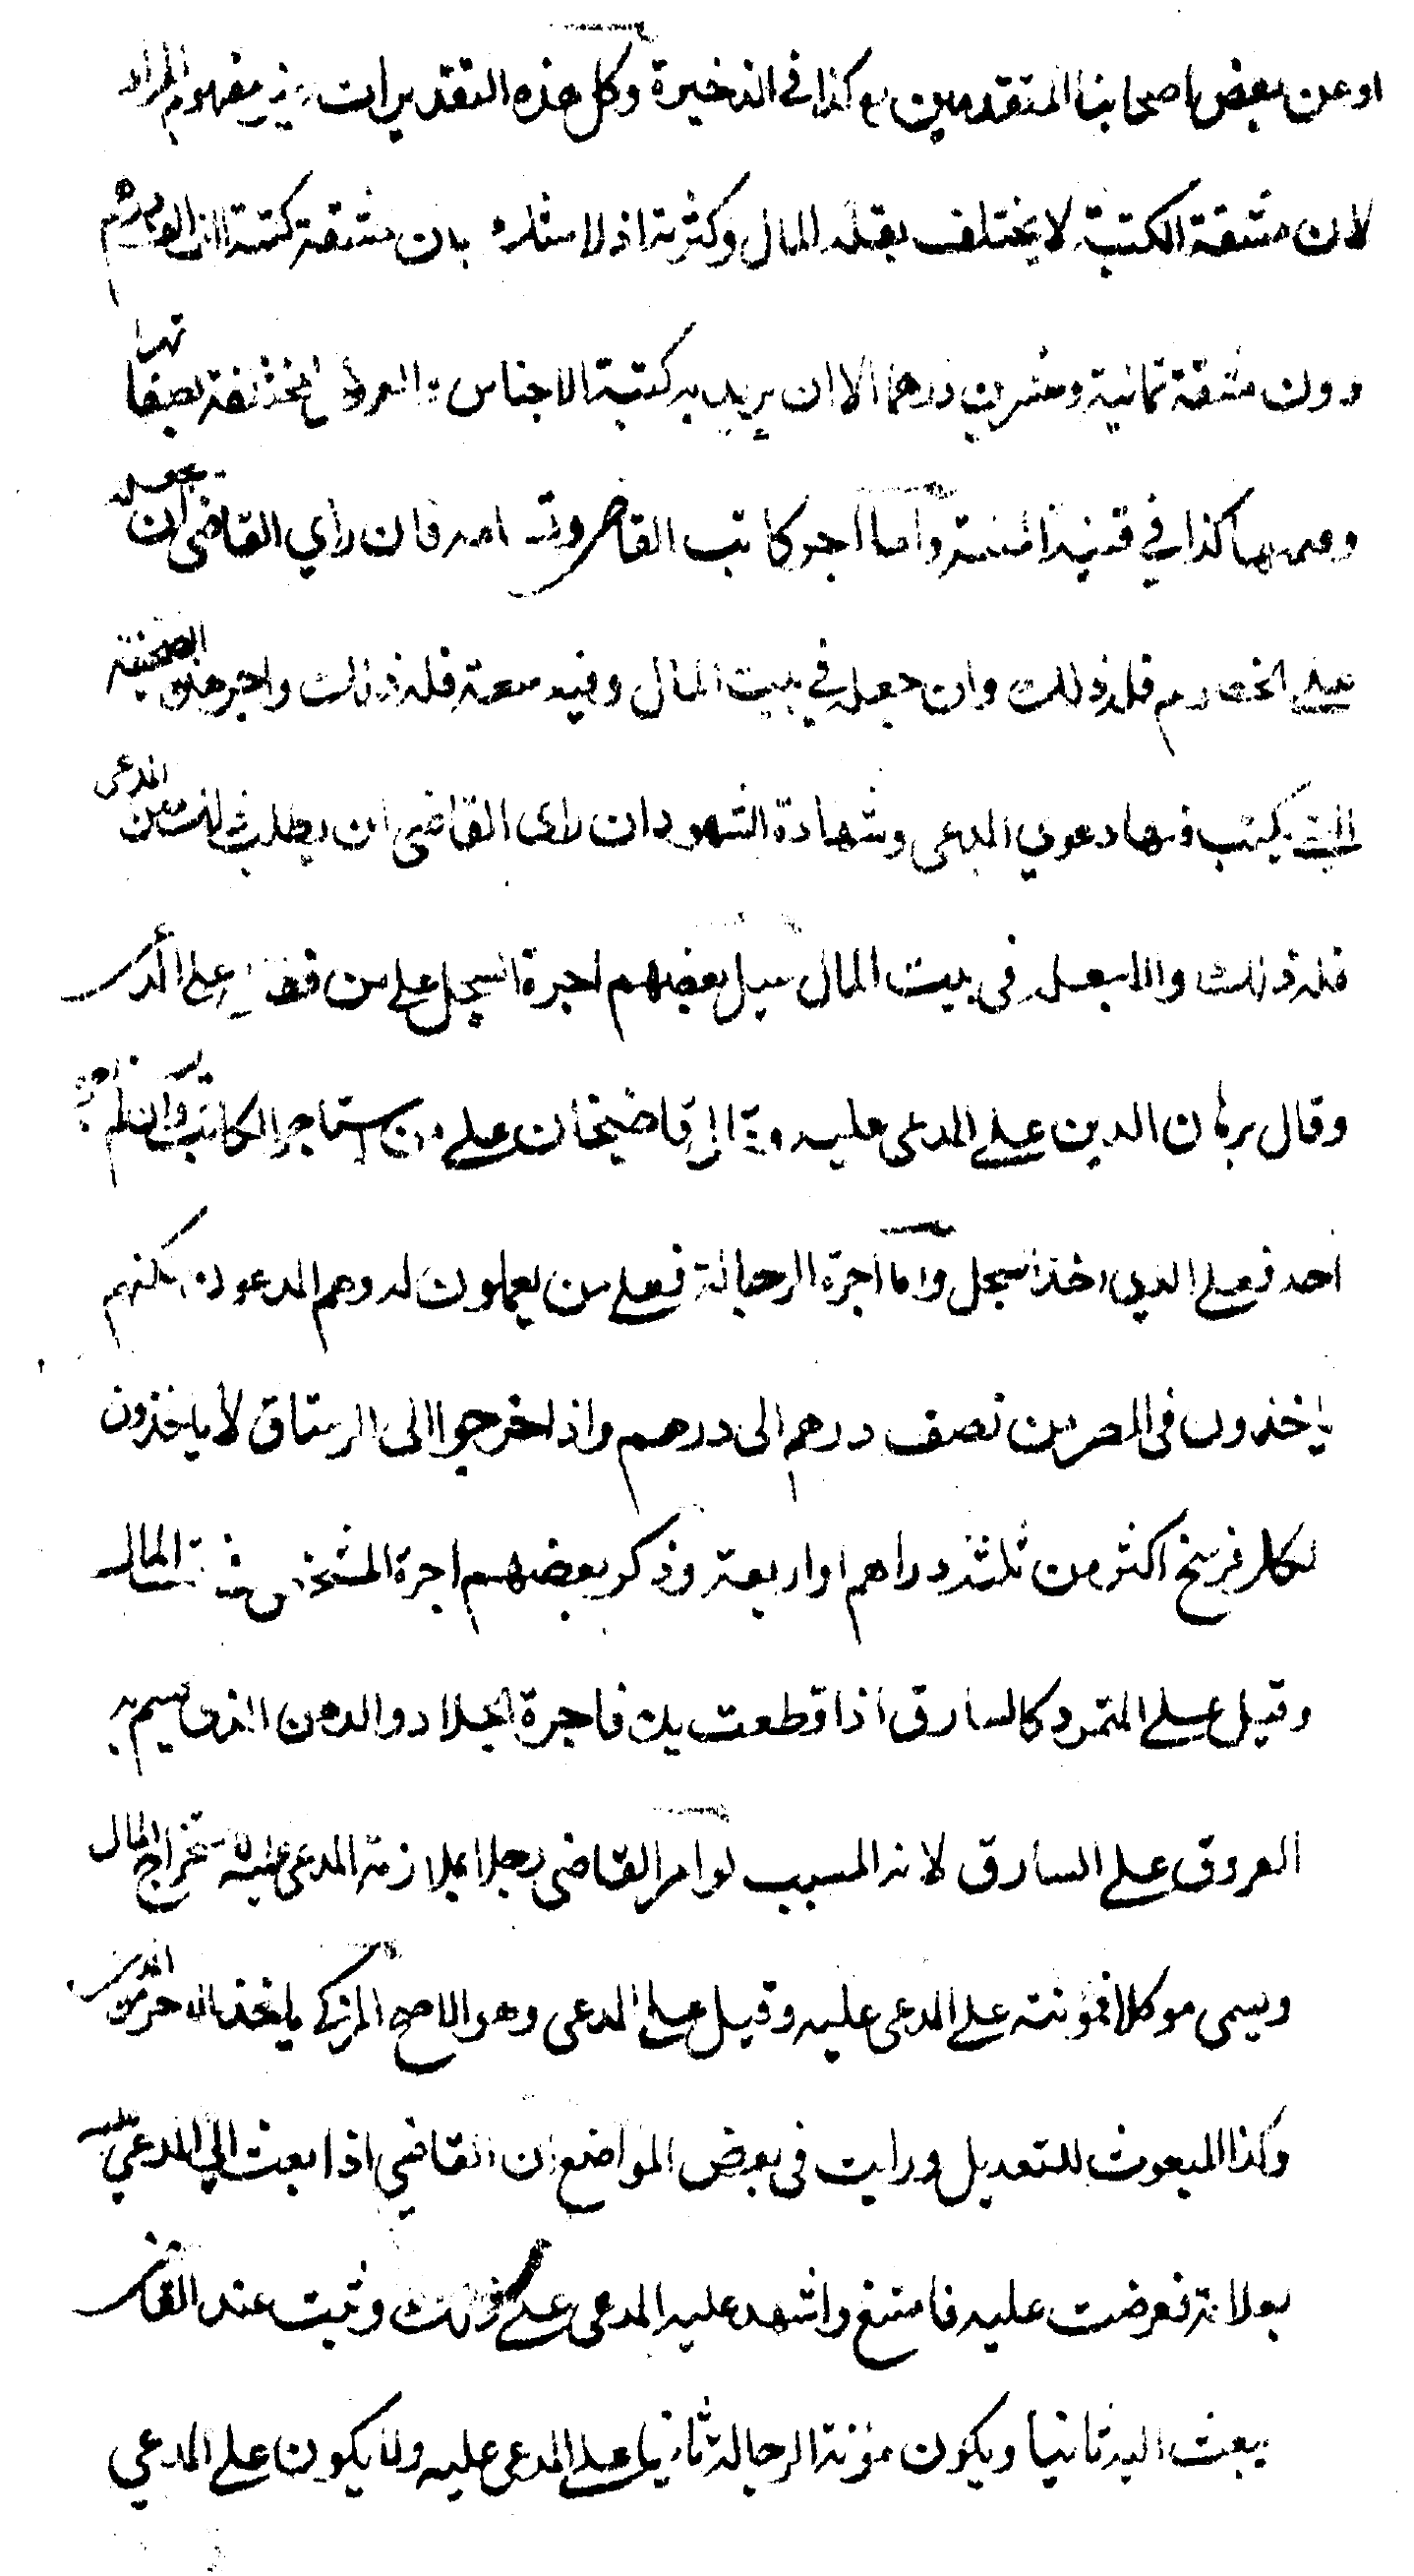 او عن بعض اصحابنا المتقدمين كذا في الذخيرة وكل هذه التقديرات غير مفهوم المراد
لان مشقة الكتبة لا يختلف بقلة المال وكثرته اذ لا شك بان مشقة كتبة الف الف درهم
دون مشقة ثمانية وعشرين درهما الا ان يريد به كتبة الاجناس العروض المختلفة بصفاتها
كذا في قنية المنية واما اجر كاتب القاضي فان راي القاضي ان يجعله
على الخصوم فله ذلك وان جعله في بيت المال وفيه سعة فله ذلك واجر هذه الصحيفة
التي يكتب فيها دعوي المدعى وشهادة الشهود ان راى القاضي ان يطلب ذلك من المدعى
فله ذلك والا جعله في بيت المال قيل بعضهم اجرة السجل على من
وقال برهان الدين على المدعى عليه وقال قاضيخان على من استاجر الكاتب وان لم يامره
احد فعلى الذي اخذ السجل واما اجرة الرجالة فعلى من يعملون له وهم المدعون لكنهم
ياخذون في المصر من نصف درهم الى درهم واذا خرجوا الى الرستاق لا ياخذون
لكل فرسخ اكثر من ثلثة دراهم او اربعة وذكر بعضهم اجرة المشخص في بيت المال
وقيل على المتمرد كالسارق اذا قطعت يده فاجرة الجلاد والدهن الذي يحسم به
العروق على السارق لانه المسبب لو امر القاضي رجلا بملازمة المدعى عليه لاستخراج المال
ويسمى موكلا فمؤنته على المدعى عليه وقيل على المدعى وهو الاصح المزكي ياخذ الاجر من المدعي
وكذا المبعوث للتعديل ورايت في بعض المواضع ان القاضي اذا بعث الي المدعي عليه
بعلامة فعرضت عليه فامتنع واشهد عليه المدعى على ذلك وثبت عند القاضي
يبعث اليه ثانيا ويكون مؤنة الرجالة ثانيا على المدعى عليه ولا يكون على المدعي